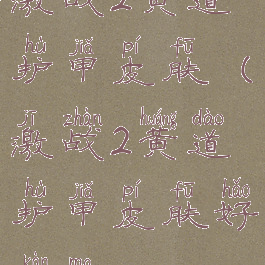 激战2黄道
hù jiǎ pí fū
护甲皮肤(
jī zhàn huáng dào
激战2黄道
hù jiǎ pí fū hǎo
护甲皮肤好
kàn ma